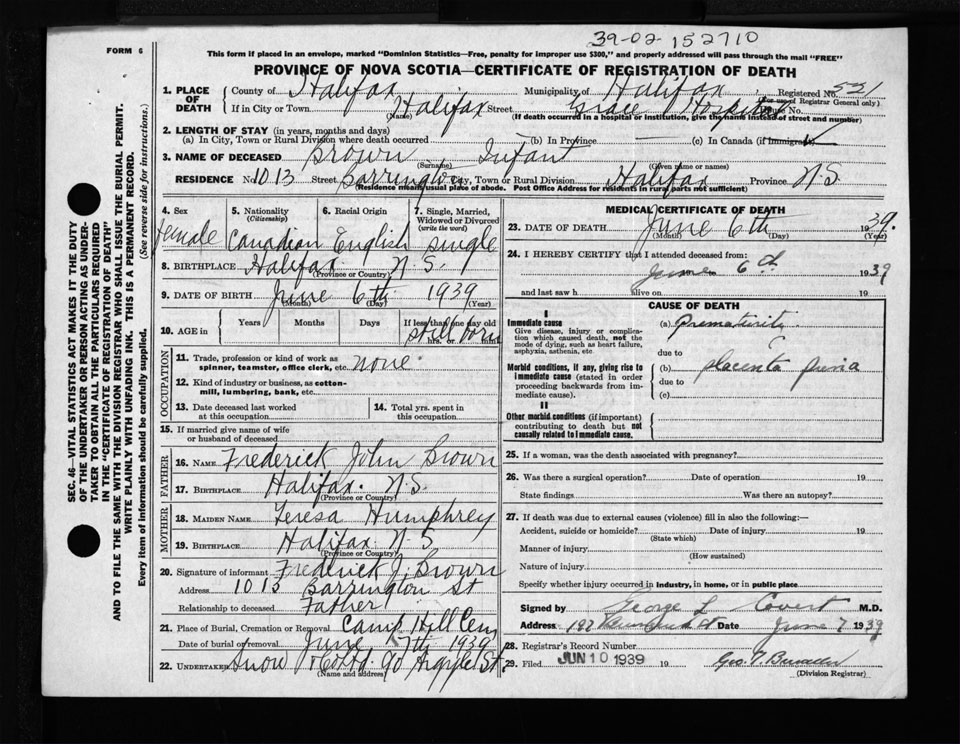 39-02-152710
FORM 6
This form if placed in an envelope, marked "Dominion Statistics—Free, penalty for improper use $300," and properly addressed will pass through the mail "FREE"
PROVINCE OF NOVA SCOTIA—CERTIFICATE OF REGISTRATION OF DEATH
1. PLACE OF DEATH
County of Halifax Municipality of Halifax Registered No. 551
(For use of Registrar General only)
If in City or Town Halifax Street Grace Hospital House No.
(Name) (If death occurred in a hospital or institution, give the name instead of street and number)
2. LENGTH OF STAY (in years, months and days)
(a) In City, Town or Rural Division where death occurred (b) In Province (c) In Canada (if immigrant)
3. NAME OF DECEASED Brown Infant
(Surname) (Given name or names)
RESIDENCE No. 1013 Street Barrington City, Town or Rural Division Halifax Province N.S.
(Residence means usual place of abode. Post Office Address for residents in rural parts not sufficient)
4. Sex 5. Nationality 6. Racial Origin 7. Single, Married,
(Citizenship) Widowed or Divorced
(write the word)
female Canadian English single
8. BIRTHPLACE Halifax N.S.
(Province or Country)
9. DATE OF BIRTH June 6th 1939
(Month) (Day) (Year)
10. AGE in Years Months Days If less than one day old
still born
hrs. or min.
OCCUPATION
11. Trade, profession or kind of work as
spinner, teamster, office clerk, etc. none
12. Kind of industry or business, as cotton-
mill, lumbering, bank, etc.
13. Date deceased last worked at this occupation
14. Total yrs. spent in this occupation
15. If married give name of wife
or husband of deceased
FATHER
16. NAME Frederick John Brown
17. BIRTHPLACE Halifax N.S.
(Province or Country)
MOTHER
18. MAIDEN NAME Teresa Humphrey
19. BIRTHPLACE Halifax N.S
(Province or Country)
20. Signature of informant Frederick J. Brown
Address 1013 Barrington St
Relationship to deceased Father
21. Place of Burial, Cremation or Removal Camp Hill Cem
Date of burial or removal June 7th 1939
22. UNDERTAKER Snow & Co Ltd. 90 Argyle St.
(Name and address)
MEDICAL CERTIFICATE OF DEATH
23. DATE OF DEATH June 6th 1939.
(Month) (Day) (Year)
24. I HEREBY CERTIFY that I attended deceased from:
June 6th 1939
and last saw h alive on 19
CAUSE OF DEATH
I
Immediate cause (a) Prematurity
Give disease, injury or complica-
tion which caused death, not the
mode of dying, such as heart failure,
asphyxia, asthenia, etc
due to
Morbid conditions, if any, giving rise to
immediate cause (stated in order
proceeding backwards from im-
mediate cause).
(b) placenta
due to
(c)
II
Other morbid conditions (if important)
contributing to death but not
causally related to immediate cause.
25. If a woman, was the death associated with pregnancy?
26. Was there a surgical operation? Date of operation 19
State findings Was there an autopsy?
27. If death was due to external causes (violence) fill in also the following:—
Accident, suicide or homicide? Date of injury 19
(State which)
Manner of injury
(How sustained)
Nature of injury
Specify whether injury occurred in industry, in home, or in public place
Signed by George L Covert M.D.
Address 197 Date June 7 1939
28. Registrar's Record Number
29. Filed JUN 10 1939 19 Geo.
(Division Registrar)
SEC. 46—VITAL STATISTICS ACT MAKES IT THE DUTY
OF THE UNDERTAKER OR PERSON ACTING AS UNDER-
TAKER TO OBTAIN ALL THE PARTICULARS REQUIRED
IN THE "CERTIFICATE OF REGISTRATION OF DEATH"
AND TO FILE THE SAME WITH THE DIVISION REGISTRAR WHO SHALL ISSUE THE BURIAL PERMIT.
WRITE PLAINLY WITH UNFADING INK. THIS IS A PERMANENT RECORD.
Every item of information should be carefully supplied. (See reverse side for instructions.)